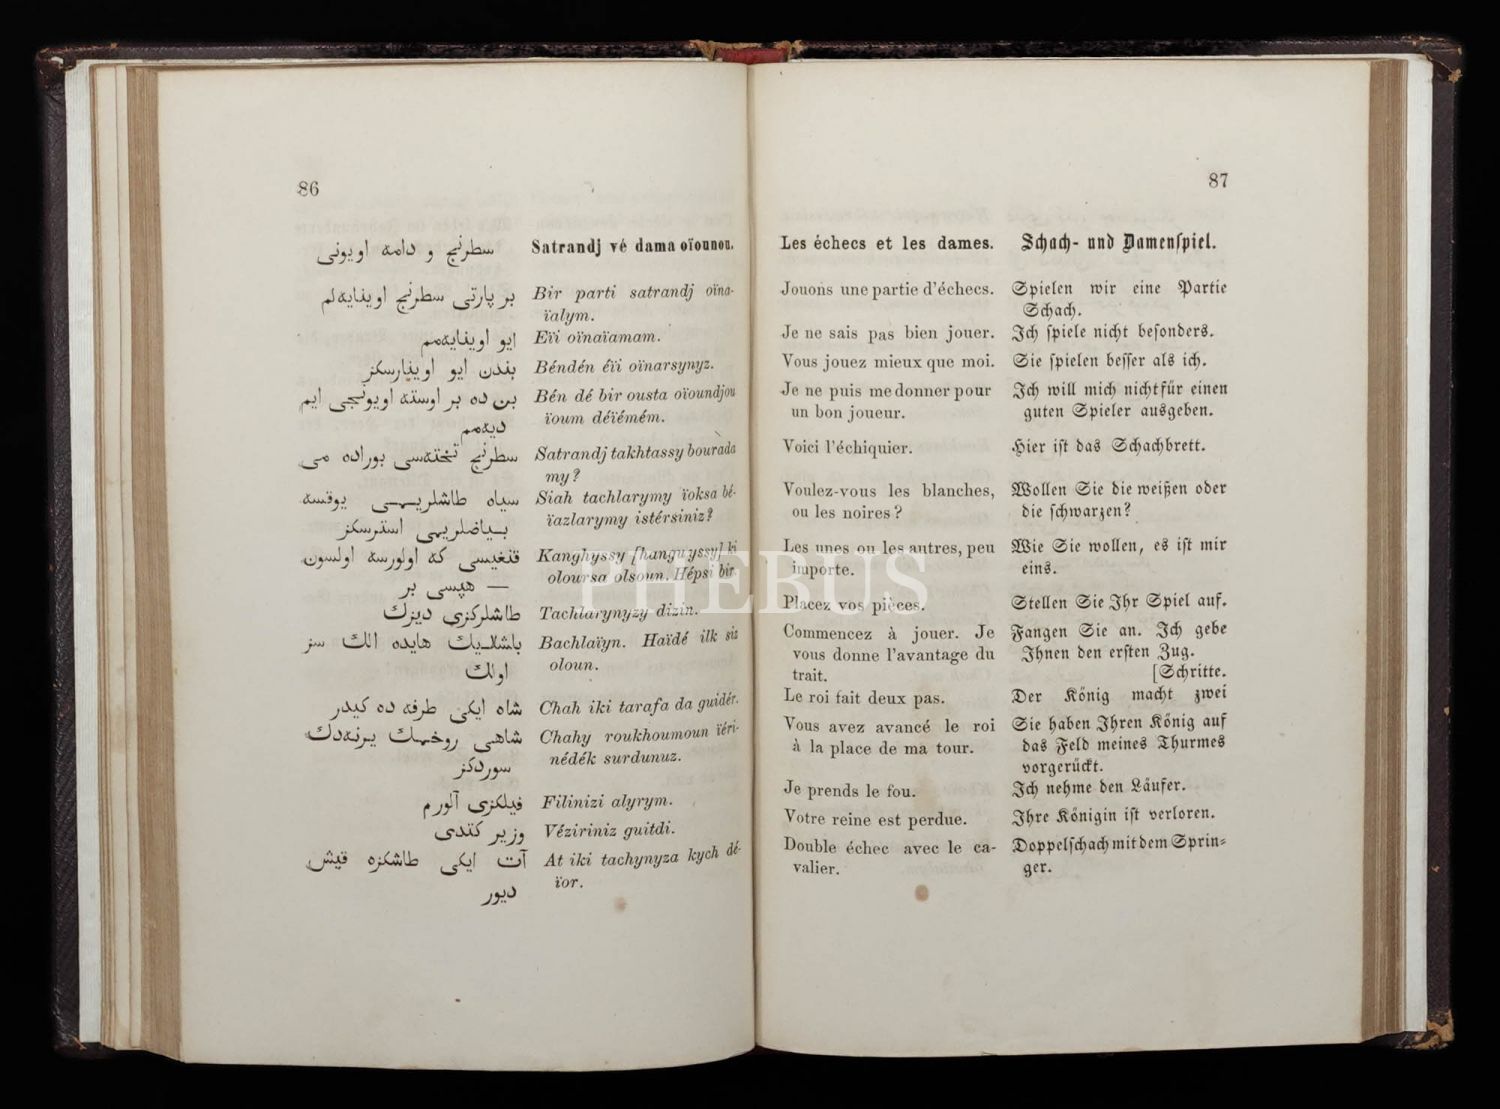 86
سطرنج و دامه اویونی
بر پارتی سطرنج اوینایه‌لم
ایو اوینایه‌مم
بندن ایو اوینارسکز
بن ده بر اوسته اویونجی ایم
دیه‌مم
سطرنج تخته‌سی بوراده می
سیاه طاشلریمی یوقسه
بیاضلریمی استرسکز
قنغیسی که اولورسه اولسون
— هپسی بر
طاشلرکزی دیزك
باشلایك هایده الك سز
اولك
شاه ایکی طرفه ده کیدر
شاهی روخمك یرنه‌دك
سوردکز
فیلکزی آلورم
وزیر کتدی
آت ایکی طاشکزه قیش
دیور
Satrandj vé dama oïounou.
Bir parti satrandj oïna-
ïalym.
Eïi oïnaïamam.
Béndén éïi oïnarsynyz.
Bén dé bir ousta oïoundjou
ïoum déïémém.
Satrandj takhtassy bourada
my?
Siah tachlarymy ïoksa bé-
ïazlarymy istérsiniz?
Kanghyssy [hanguyssy] ki
oloursa olsoun. Hépsi bir.
Tachlarynyzy dizin.
Bachlaïyn. Haïdé ilk siz
oloun.
Chah iki tarafa da guidér.
Chahy roukhoumoun ïéri-
nédék surdunuz.
Filinizi alyrym.
Véziriniz guitdi.
At iki tachynyza kych dé-
ïor.
87
Les échecs et les dames.
Jouons une partie d'échecs.
Je ne sais pas bien jouer.
Vous jouez mieux que moi.
Je ne puis me donner pour
un bon joueur.
Voici l'échiquier.
Voulez-vous les blanches,
ou les noires?
Les unes ou les autres, peu
importe.
Placez vos pièces.
Commencez à jouer. Je
vous donne l'avantage du
trait.
Le roi fait deux pas.
Vous avez avancé le roi
à la place de ma tour.
Je prends le fou.
Votre reine est perdue.
Double échec avec le ca-
valier.
Schach- und Damenspiel.
Spielen wir eine Partie
Schach.
Ich spiele nicht besonders.
Sie spielen besser als ich.
Ich will mich nicht für einen
guten Spieler ausgeben.
Hier ist das Schachbrett.
Wollen Sie die weißen oder
die schwarzen?
Wie Sie wollen, es ist mir
eins.
Stellen Sie Ihr Spiel auf.
Fangen Sie an. Ich gebe
Ihnen den ersten Zug.
[Schritte.
Der König macht zwei
Sie haben Ihren König auf
das Feld meines Thurmes
vorgerückt.
Ich nehme den Läufer.
Ihre Königin ist verloren.
Doppelschach mit dem Sprin-
ger.
PHEBUS